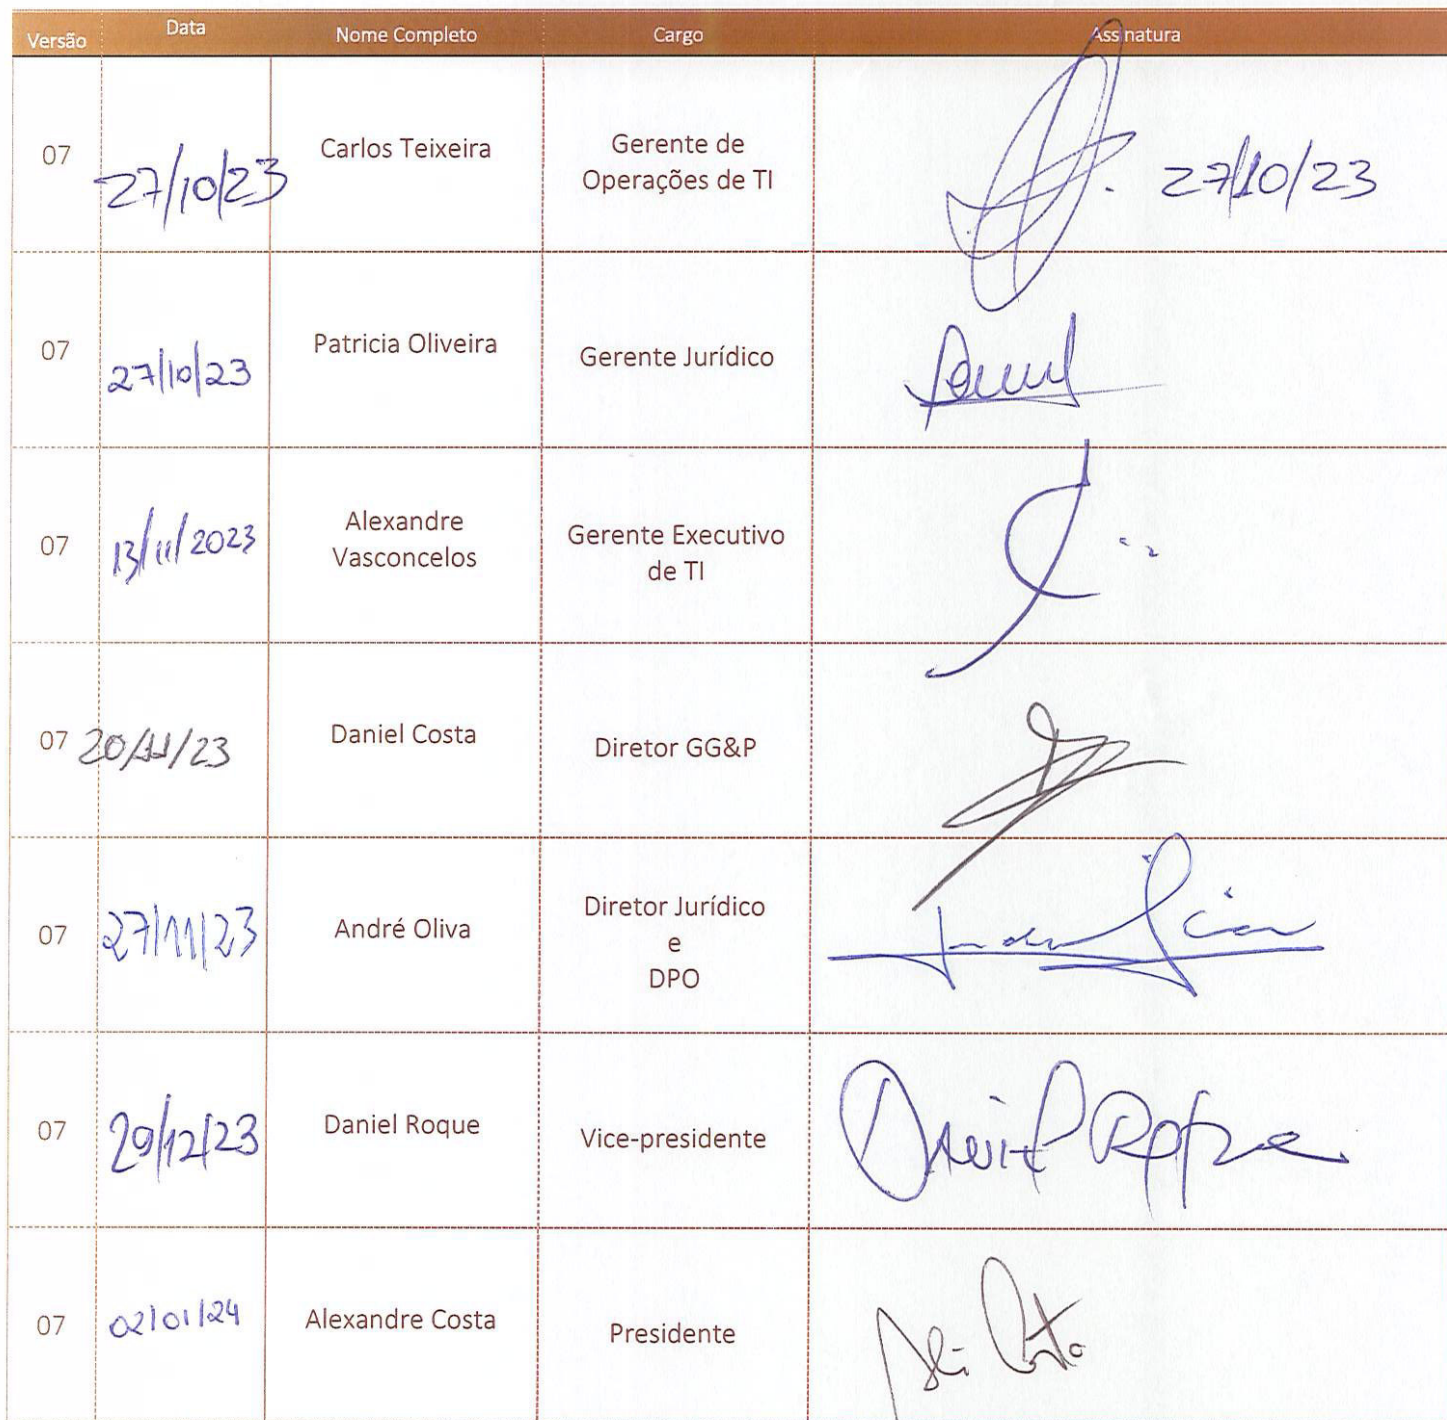 Versão Data Nome Completo Cargo Assinatura
07 27/10/23 Carlos Teixeira Gerente de
Operações de TI
27/10/23
07 27/10/23 Patricia Oliveira Gerente Jurídico
07 13/11/2023 Alexandre
Vasconcelos
Gerente Executivo
de TI
07 20/11/23 Daniel Costa Diretor GG&P
07 27/11/23 André Oliva Diretor Jurídico
e
DPO
07 29/12/23 Daniel Roque Vice-presidente
07 02/01/24 Alexandre Costa Presidente